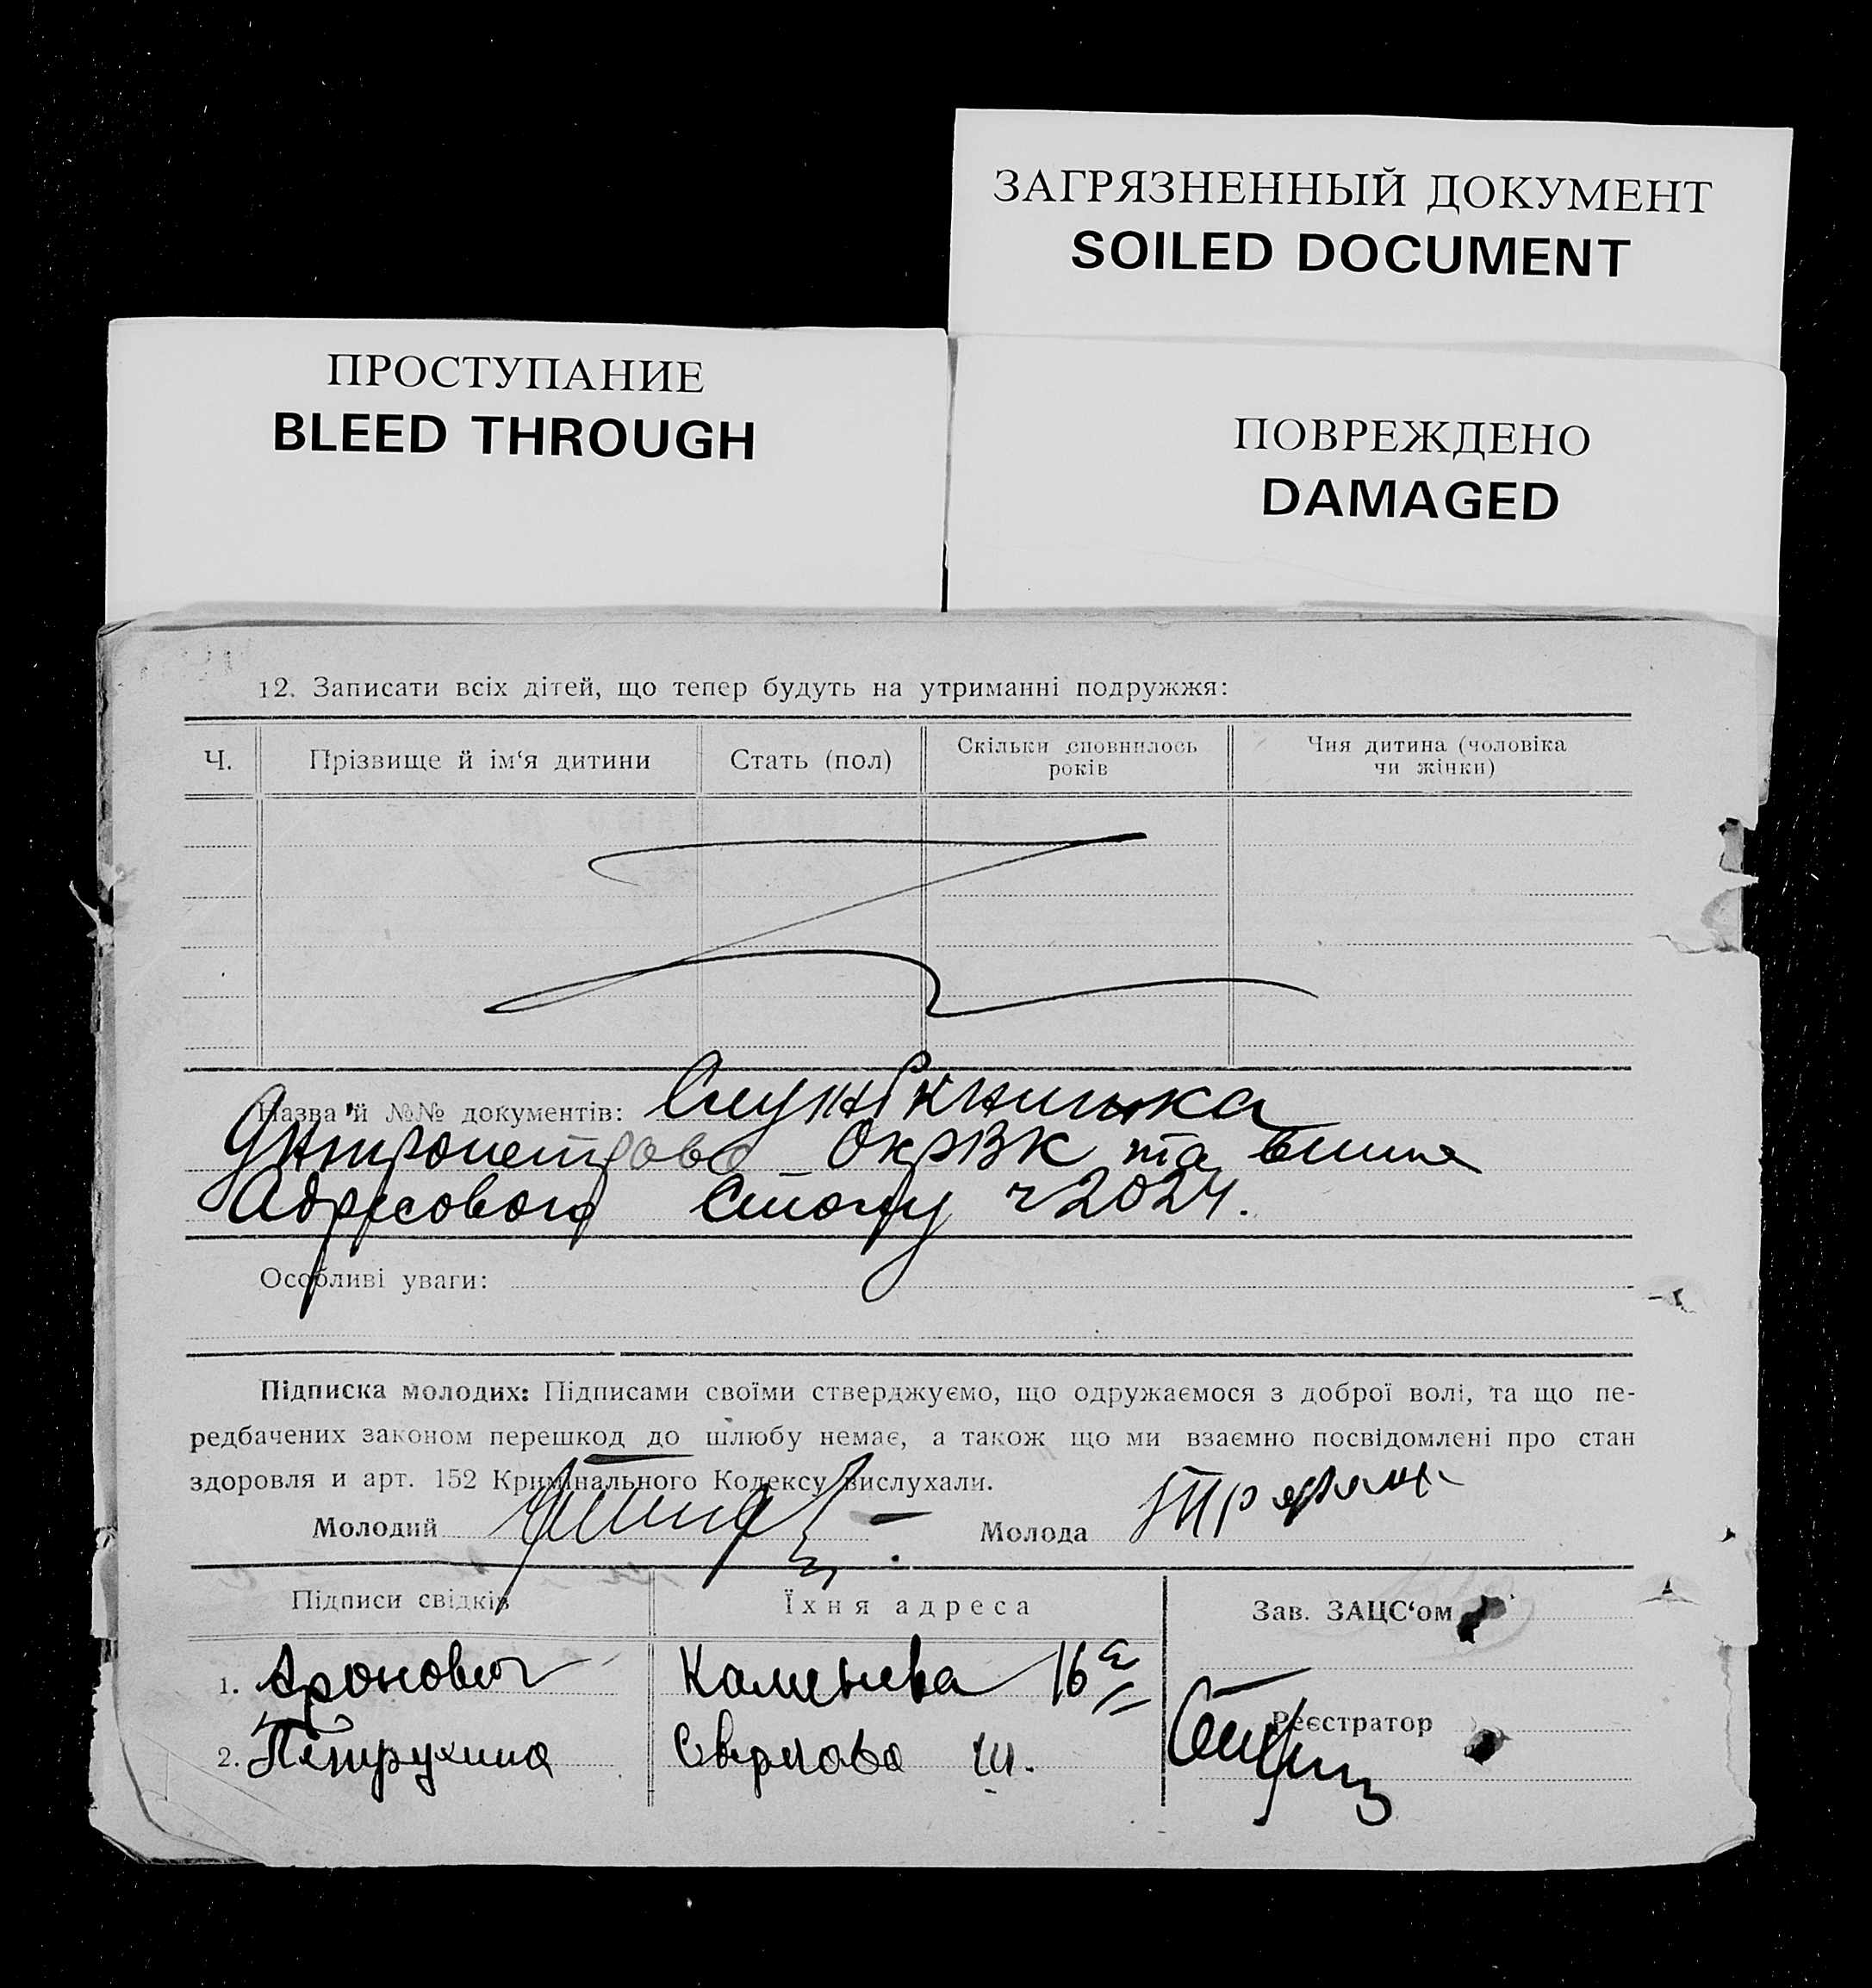 ЗАГРЯЗНЕННЫЙ ДОКУМЕНТ
SOILED DOCUMENT
ПРОСТУПАНИЕ
BLEED THROUGH
ПОВРЕЖДЕНО
DAMAGED
12. Записати всіх дітей, що тепер будуть на утриманні подружжя:
Ч.
Прізвище й ім‘я дитини
Стать (пол)
Скільки сповнилось
років
Чия дитина (чоловіка
чи жінки)
Назва й №№ документів: книжка
ОкрВК та
Адресового Столу ч 2024.
Особливі уваги:
Підписка молодих: Підписами своїми стверджуємо, що одружаємося з доброї волі, та що пе-
редбачених законом перешкод до шлюбу немає, а також що ми взаємно посвідомлені про стан
здоровля и арт. 152 Кримінального Кодексу вислухали.
Молодий
Молода
Підписи свідків
Їхня адреса
Зав. ЗАЦС‘ом
1. Аронович Каменева 16
Реєстратор
2. Петрухина